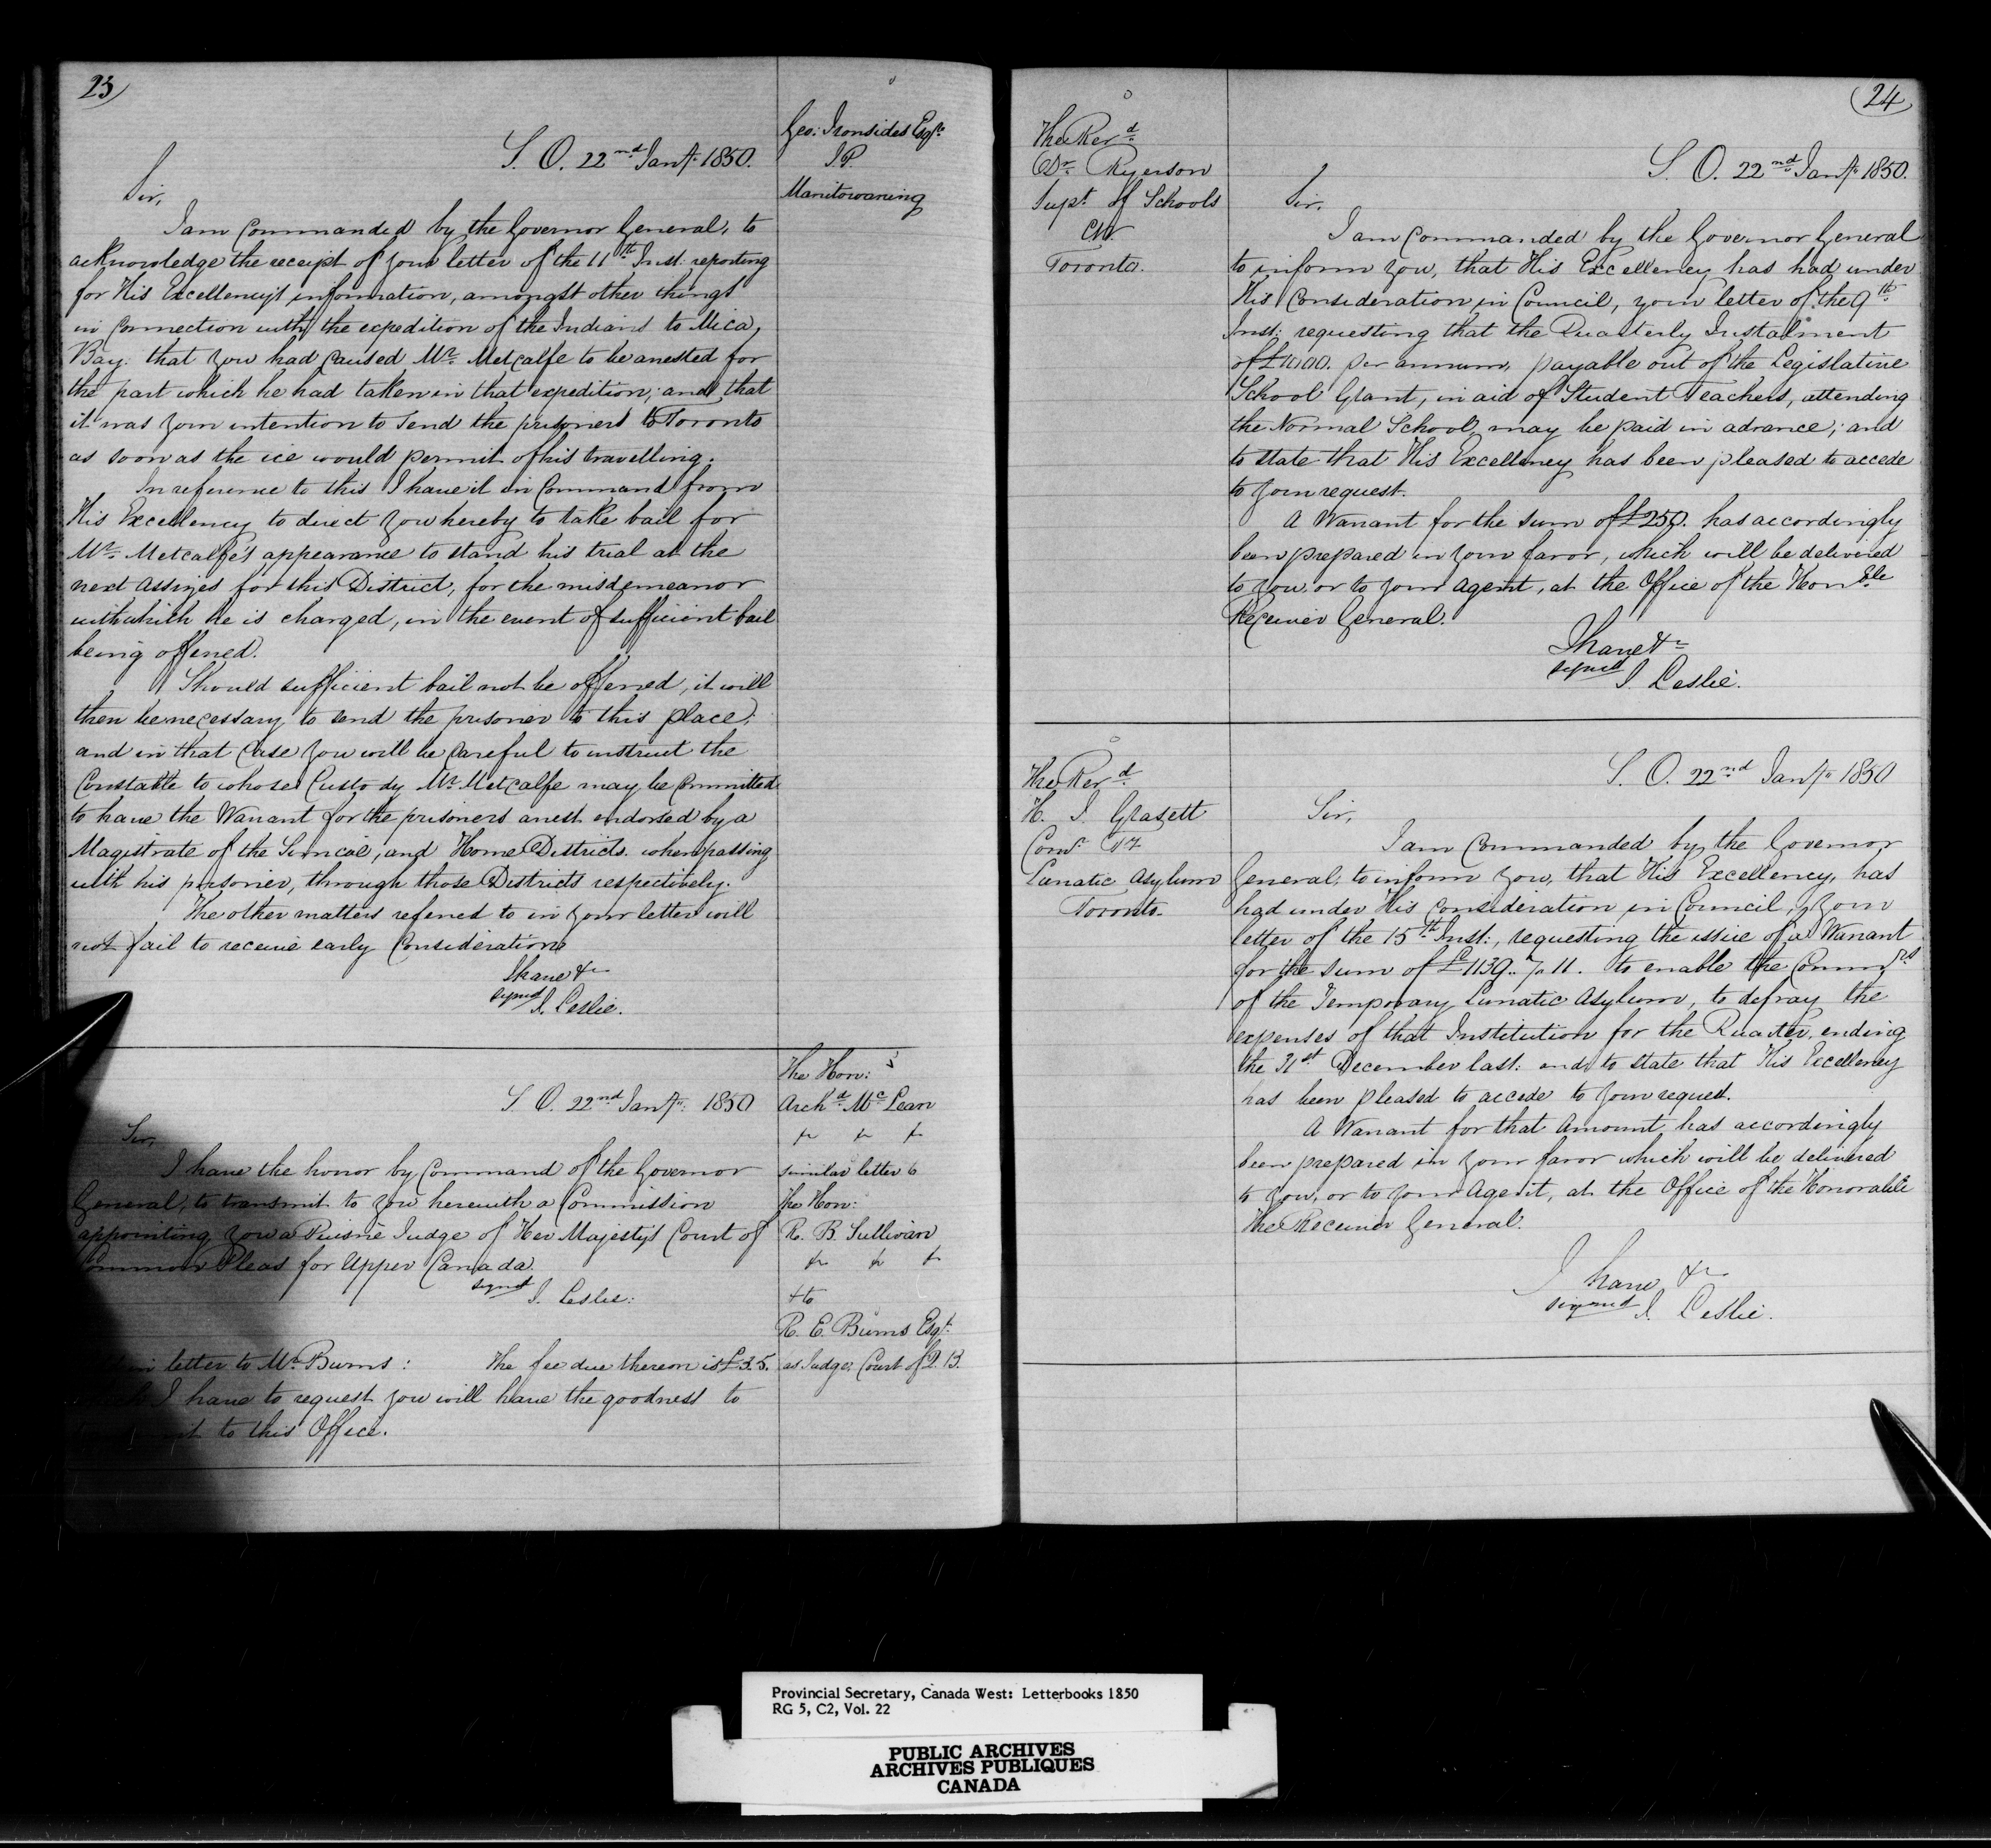 23
Geo: Ironsides Esqr.
J.P.
Manitowaning
S. O. 22nd Jany. 1850.
Sir,
I am Commanded by the Governor General, to
acknowledge the receipt of your letter of the 11th Inst. reporting
for His Excellency's information, amongst other things
in Connection with the expedition of the Indians to Mica
Bay. that you had Caused Mr. Metcalfe to be arrested for
the part which he had taken in that expedition; and that
it was your intention to send the prisoners to Toronto
as soon as the ice would permit of his travelling.
In reference to this I have it in Command from
His Excellency to direct you hereby to take bail for
Mr. Metcalfe's appearance to stand his trial at the
next Assizes for this District, for the misdemeanor
with which he is charged, in the event of sufficient bail
being offered.
Should sufficient bail not be offered, it will
then be necessary to send the prisoner to this place;
and in that Case you will be Careful to instruct the
Constable to whose Custody Mr. Metcalfe may be Committed
to have the Warrant for the prisoners arrest endorsed by a
Magistrate of the Simcoe, and Home Districts. when passing
with his prisoner, through those Districts respectively.
The other matters referred to in your letter will
not fail to receive early Consideration
I have &c
signed
J. Leslie.
The Hon:
Archd. McLean
similar letter to
The Hon:
R. B. Sullivan
& to
R. E. Burns Esqr.
as Judge Court of Q.B.
S. O. 22nd Jany: 1850
Sir,
I have the honor by Command of the Governor
General, to transmit to you herewith a Commission
appointing you a Puisne Judge of Her Majesty's Court of
Common Pleas for Upper Canada.
signed
J. Leslie:
in letter to Mr. Burns: The fee due thereon is £3.5.
I have to request you will have the goodness to
to this Office.
24
The Revd.
Dr. Ryerson
Supt. of Schools
CW.
Toronto.
S. O. 22nd Jany. 1850.
Sir,
I am Commanded by the Governor General
to inform you, that His Excellency has had under
His Consideration in Council, your letter of the 9th
Inst: requesting that the Quarterly Instalment
of £1000. per annum, payable out of the Legislative
School Grant, in aid of Student Teachers, attending
the Normal School, may be paid in advance; and
to state that His Excellency has been pleased to accede
to your request.
A Warrant for the sum of £250. has accordingly
been prepared in your favor, which will be delivered
to you, or to your Agent, at the Office of the Honble
Receiver General.
I have &c
signed
J. Leslie.
The Revd.
H. J. Grasett
Lunatic Asylum
Toronto.
S. O. 22nd Jany. 1850
Sir,
I am Commanded by the Governor
General, to inform you, that His Excellency, has
had under His Consideration in Council, your
letter of the 15th Inst:, requesting the issue of a Warrant
for the sum of £1139..7.11. to enable the Commrs
of the Temporary Lunatic Asylum, to defray the
expenses of that Institution for the Quarter, ending
the 31st December last: and to state that His Excellency
has been pleased to accede to your request.
A Warrant for that Amount has accordingly
been prepared in your favor which will be delivered
to you, or to your Agent, at the Office of the Honorable
The Receiver General.
I have &c
signed J. Leslie.
Provincial Secretary, Canada West: Letterbooks 1850
RG 5, C2, Vol. 22
PUBLIC ARCHIVES
ARCHIVES PUBLIQUES
CANADA